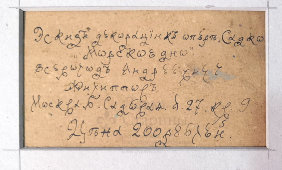 Эскизъ декорацiи къ оперѣ „Садко"
„Морское дно"
Всеволодъ Андреевичъ
Москва, Б. Садовая д 27. кв. 9
Цѣна 200 рублей.